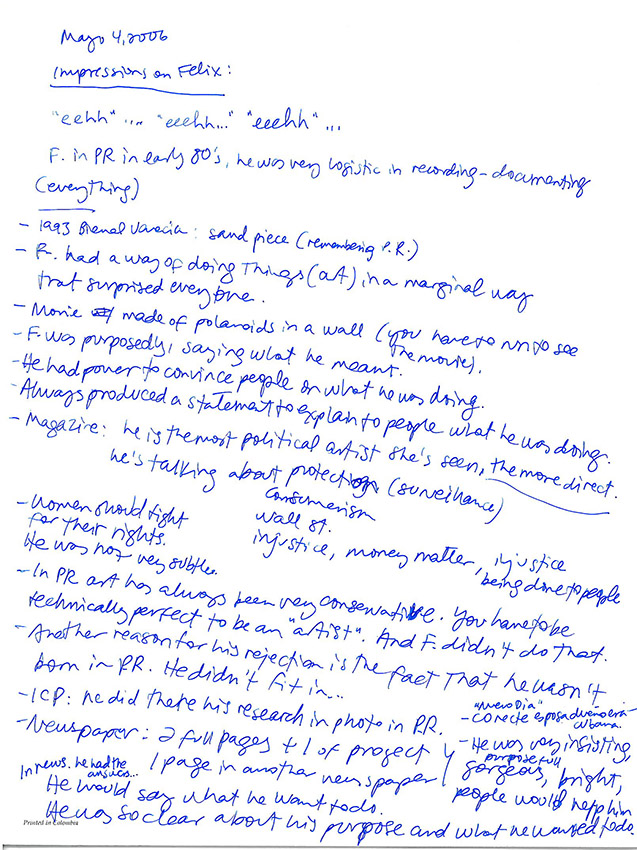 Mayo 4, 2006
Impressions on Felix:
"eehh" ... "eeehh..." "eeehh" ...
F. in PR in early 80's, he was very logistic in recording - documenting
(everything)
- 1993 Bienal Varecia: sand piece (remembering P.R.)
- F. had a way of doing things (art) in a marginal way
that surprised everyone.
- Movie made of polaroids in a wall (you have to run to see
the movie).
- F. was purposedly, saying what he meant.
- He had power to convince people on what he was doing.
- Always produced a statement to explain to people what he was doing.
- Magazine: he is the most political artist she's seen, the more direct.
he's talking about protection (surveillance)
consumerism
wall st.
injustice, money matter, injustice
being done to people
- Women should fight
for their rights.
He was not very subtle.
- In PR art has always been very conservative. You have to be
technically perfect to be an "artist". And F. didn't do that.
- Another reason for his rejection is the fact that he wasn't
born in PR. He didn't fit in...
- ICP: he did there his research in photo in P.R.
"Nuevo Dia"
- Corecte esposa dueño era
cubana.
- Newspaper: 2 full pages + 1 of project y
1 page in another newspaper
In news. he had the
ansucs...
He would say what he want to do.
- He was very insisting,
purpose full
gorgeous, bright,
people would help him
He was so clear about his purpose and what he wanted to do.
Printed in Colombia